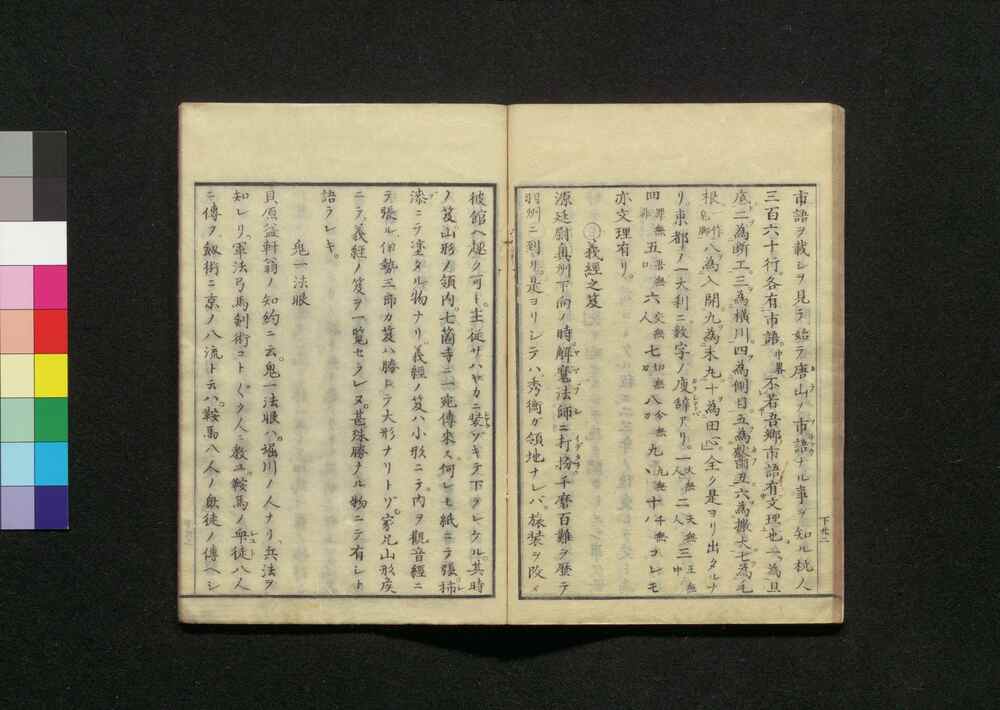 市語ヲ載シヲ見ラ始テ唐山ノ市語ナル事ヲ知ル桃人
三百六十行各有市語。不若吾郷市語有文理也一為旦
底二為断工三為横川四為側目五為缺丑六為撒大七為毛
根八為入開九為未丸十為田心。全ク是ヨリ出タルナ
リ。東都ノ一大利ニ数字ノ廋辭アリ。一人無二天無三王無
四罪無五吾無六交無七切無八分無九丸無十千無ナレモ
亦文理有リ。
義經之笈
源廷尉奥州下向ノ時。解魔法師ニ打扮千磨百難ヲ歴テ
羽州ニ到リ。是ヨリシテハ秀衡ガ領地ナレバ。旅装ヲ改メ
彼館ヘ趣ク可ト。主従サハヤカニ装ヅキテ下ラレケル。其時
ノ笈山形ノ領内。七箇寺ニ一宛傳来ス何レモ紙ニテ張柿
漆ニテ塗タル物ナリ。義經ノ笈ハ小形ニテ。内ヲ觀音經ニ
テ張ル。伯勢三郎カ笈ハ勝レテ大形ナリトゾ。家兄山形戻
ニテ義經ノ笈ヲ一覧セラレヌ。甚殊勝ナル物ニテ有シト
語ラレキ。
鬼一法眼
貝原益軒翁ノ知約ニ云。鬼一法眼ハ。堀川ノ人ナリ、兵法ヲ
知レリ。軍法弓馬剣術コトヾク人ニ教ユ。鞍馬ノ衆徒八人
ニ傳フ。劔術ニ京ノ八流ト云ハ。鞍馬八人ノ衆徒ノ傳ヘシ